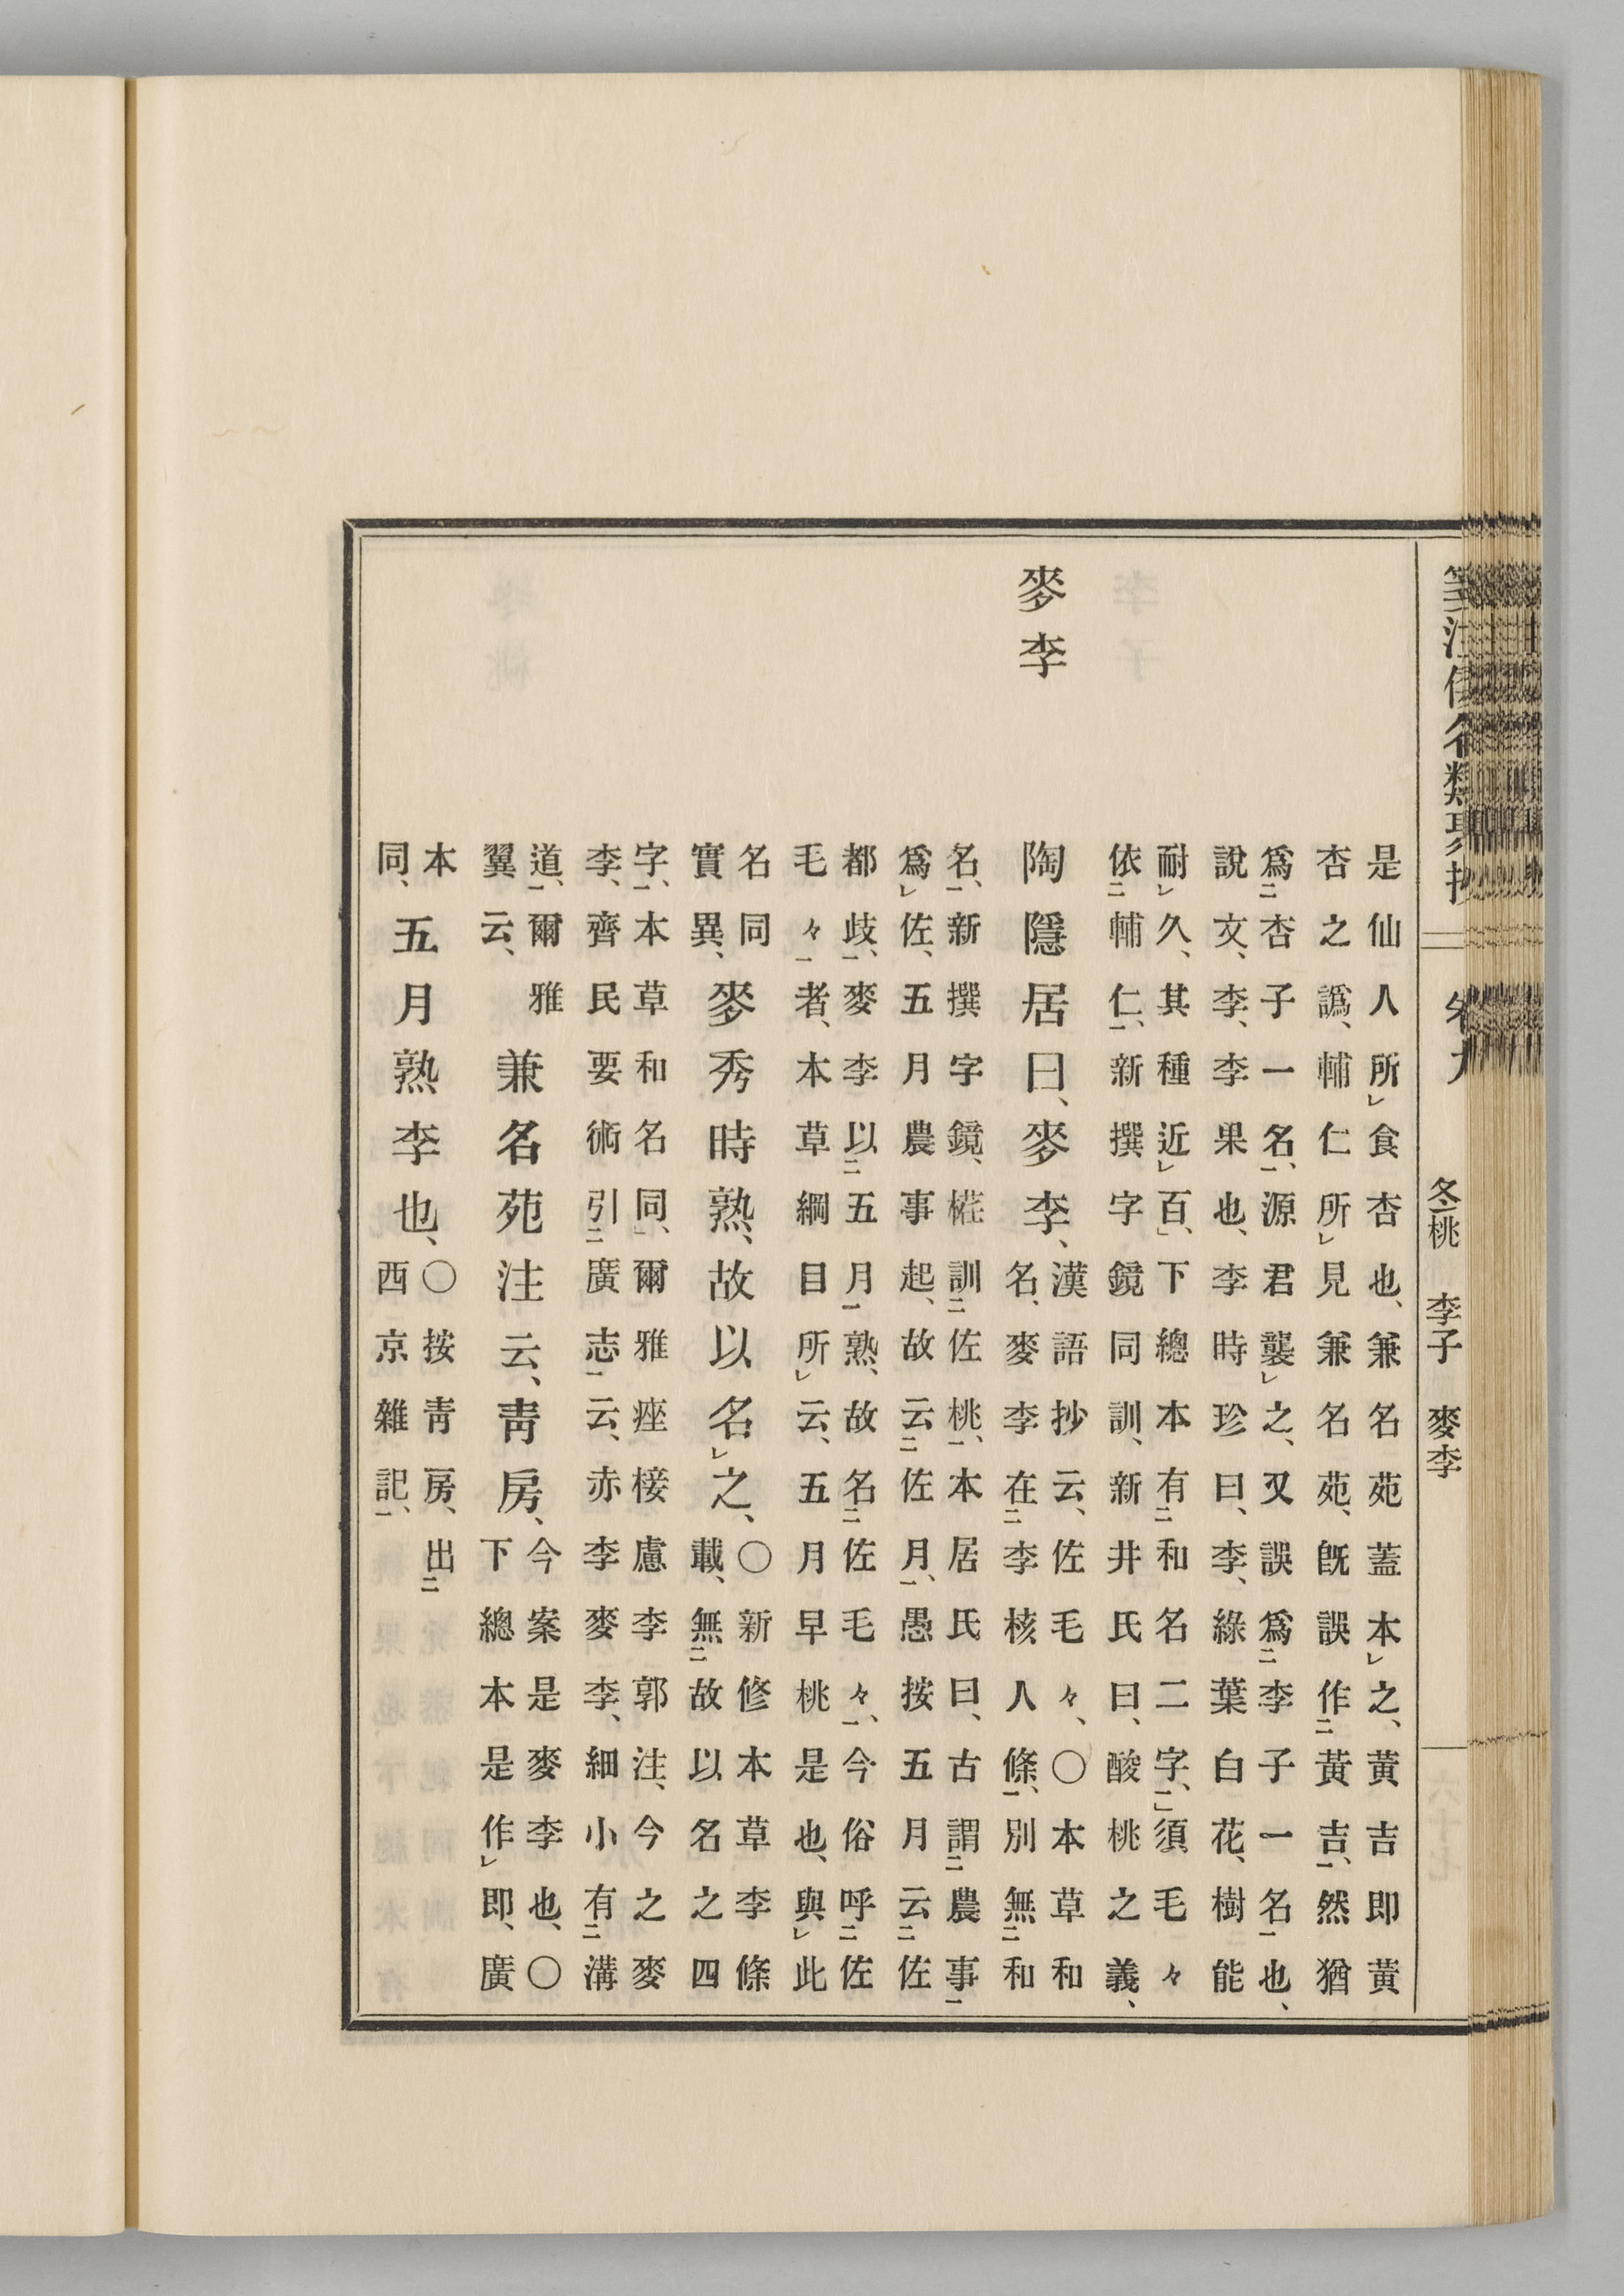 冬桃 李子 麥李
是仙人所食杏也、兼名苑蓋本之、黃吉即黃
杏之譌、輔仁所見兼名苑、既誤作黃吉、然猶
爲杏子一名、源君襲之、又誤爲李子一名也、
說文、李、李果也、李時珍曰、李、綠葉白花、樹能
耐久、其種近百、」下總本有和名二字、」須毛々
依輔仁、新撰字鏡同訓、新井氏曰、酸桃之義、
麥李
陶隱居曰、麥李、
漢語抄云、佐毛々、〇本草和
名、麥李在李核人條、別無和
名、新撰字鏡、㭾訓佐桃、本居氏曰、古謂農事
爲佐、五月農事起、故云佐月、愚按五月云佐
都歧、麥李以五月熟、故名佐毛々、今俗呼佐
毛々者、本草綱目所云、五月早桃是也、與此
名同
實異、
麥秀時熟、故以名之、
〇新修本草李條
載、無故以名之四
字、本草和名同、」爾雅痤椄慮李郭注、今之麥
李、齊民要術引廣志云、赤李麥李、細小有溝
道、爾雅
翼云、
兼名苑注云、靑房、
今案是麥李也、〇
下總本是作即、廣
本
同、
五月熟李也、
〇按靑房、出
西京雜記、